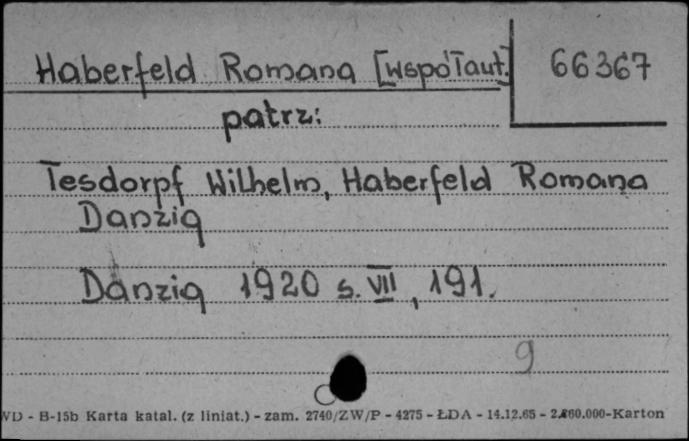 Haberfeld Romana [współaut.] 66367
patrz:
Tesdorpf Wilhelm, Haberfeld Romana
Danzig
Danzig 1920 s. VII, 191.
9
WD - B-15b Karta katal. (z liniat.) - zam. 2740/ZW/P - 4275 - ŁDA - 14.12.65 - 2.860.000-Karton